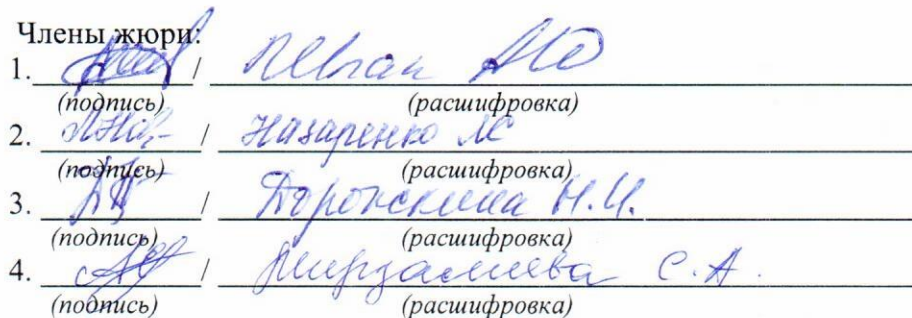 Члены жюри:
1. /
(подпись) (расшифровка)
2. / Назаренко ЛС
(подпись) (расшифровка)
3. / Н.И.
(подпись) (расшифровка)
4. / Мирзалиева С.А.
(подпись) (расшифровка)